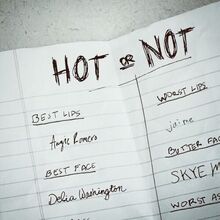 HOT OR NOT
BEST LIPS
Angie Romero
BEST FACE
Delia Washington
BEST
WORST LIPS
jaime
BUTTER FAC
SKYE M
WORST AS